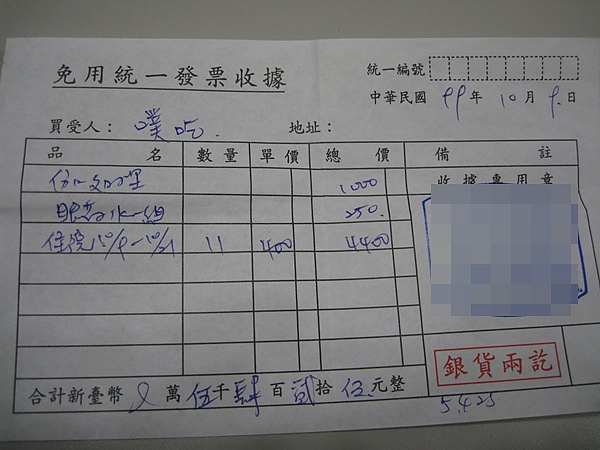 免用統一發票收據
統一編號
中華民國 99 年 10 月 9 日
買受人： 噗吃 地址：
品名 數量 單價 總價 備註
傷口處理 1000 收據專用章
250
住院 10/9-10/21 11 400 4400
銀貨兩訖
合計新臺幣 0 萬 伍 千 肆 百 貳 拾 伍 元整
5425